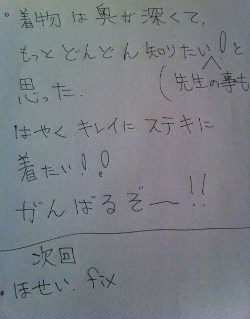 。着物は奥が深くて、
もっとどんどん知りたい!と
(先生の事も
思った.
はやくキレイにステキに
着たい!!
がんばるぞ〜!!
次回
・ほせい. fix